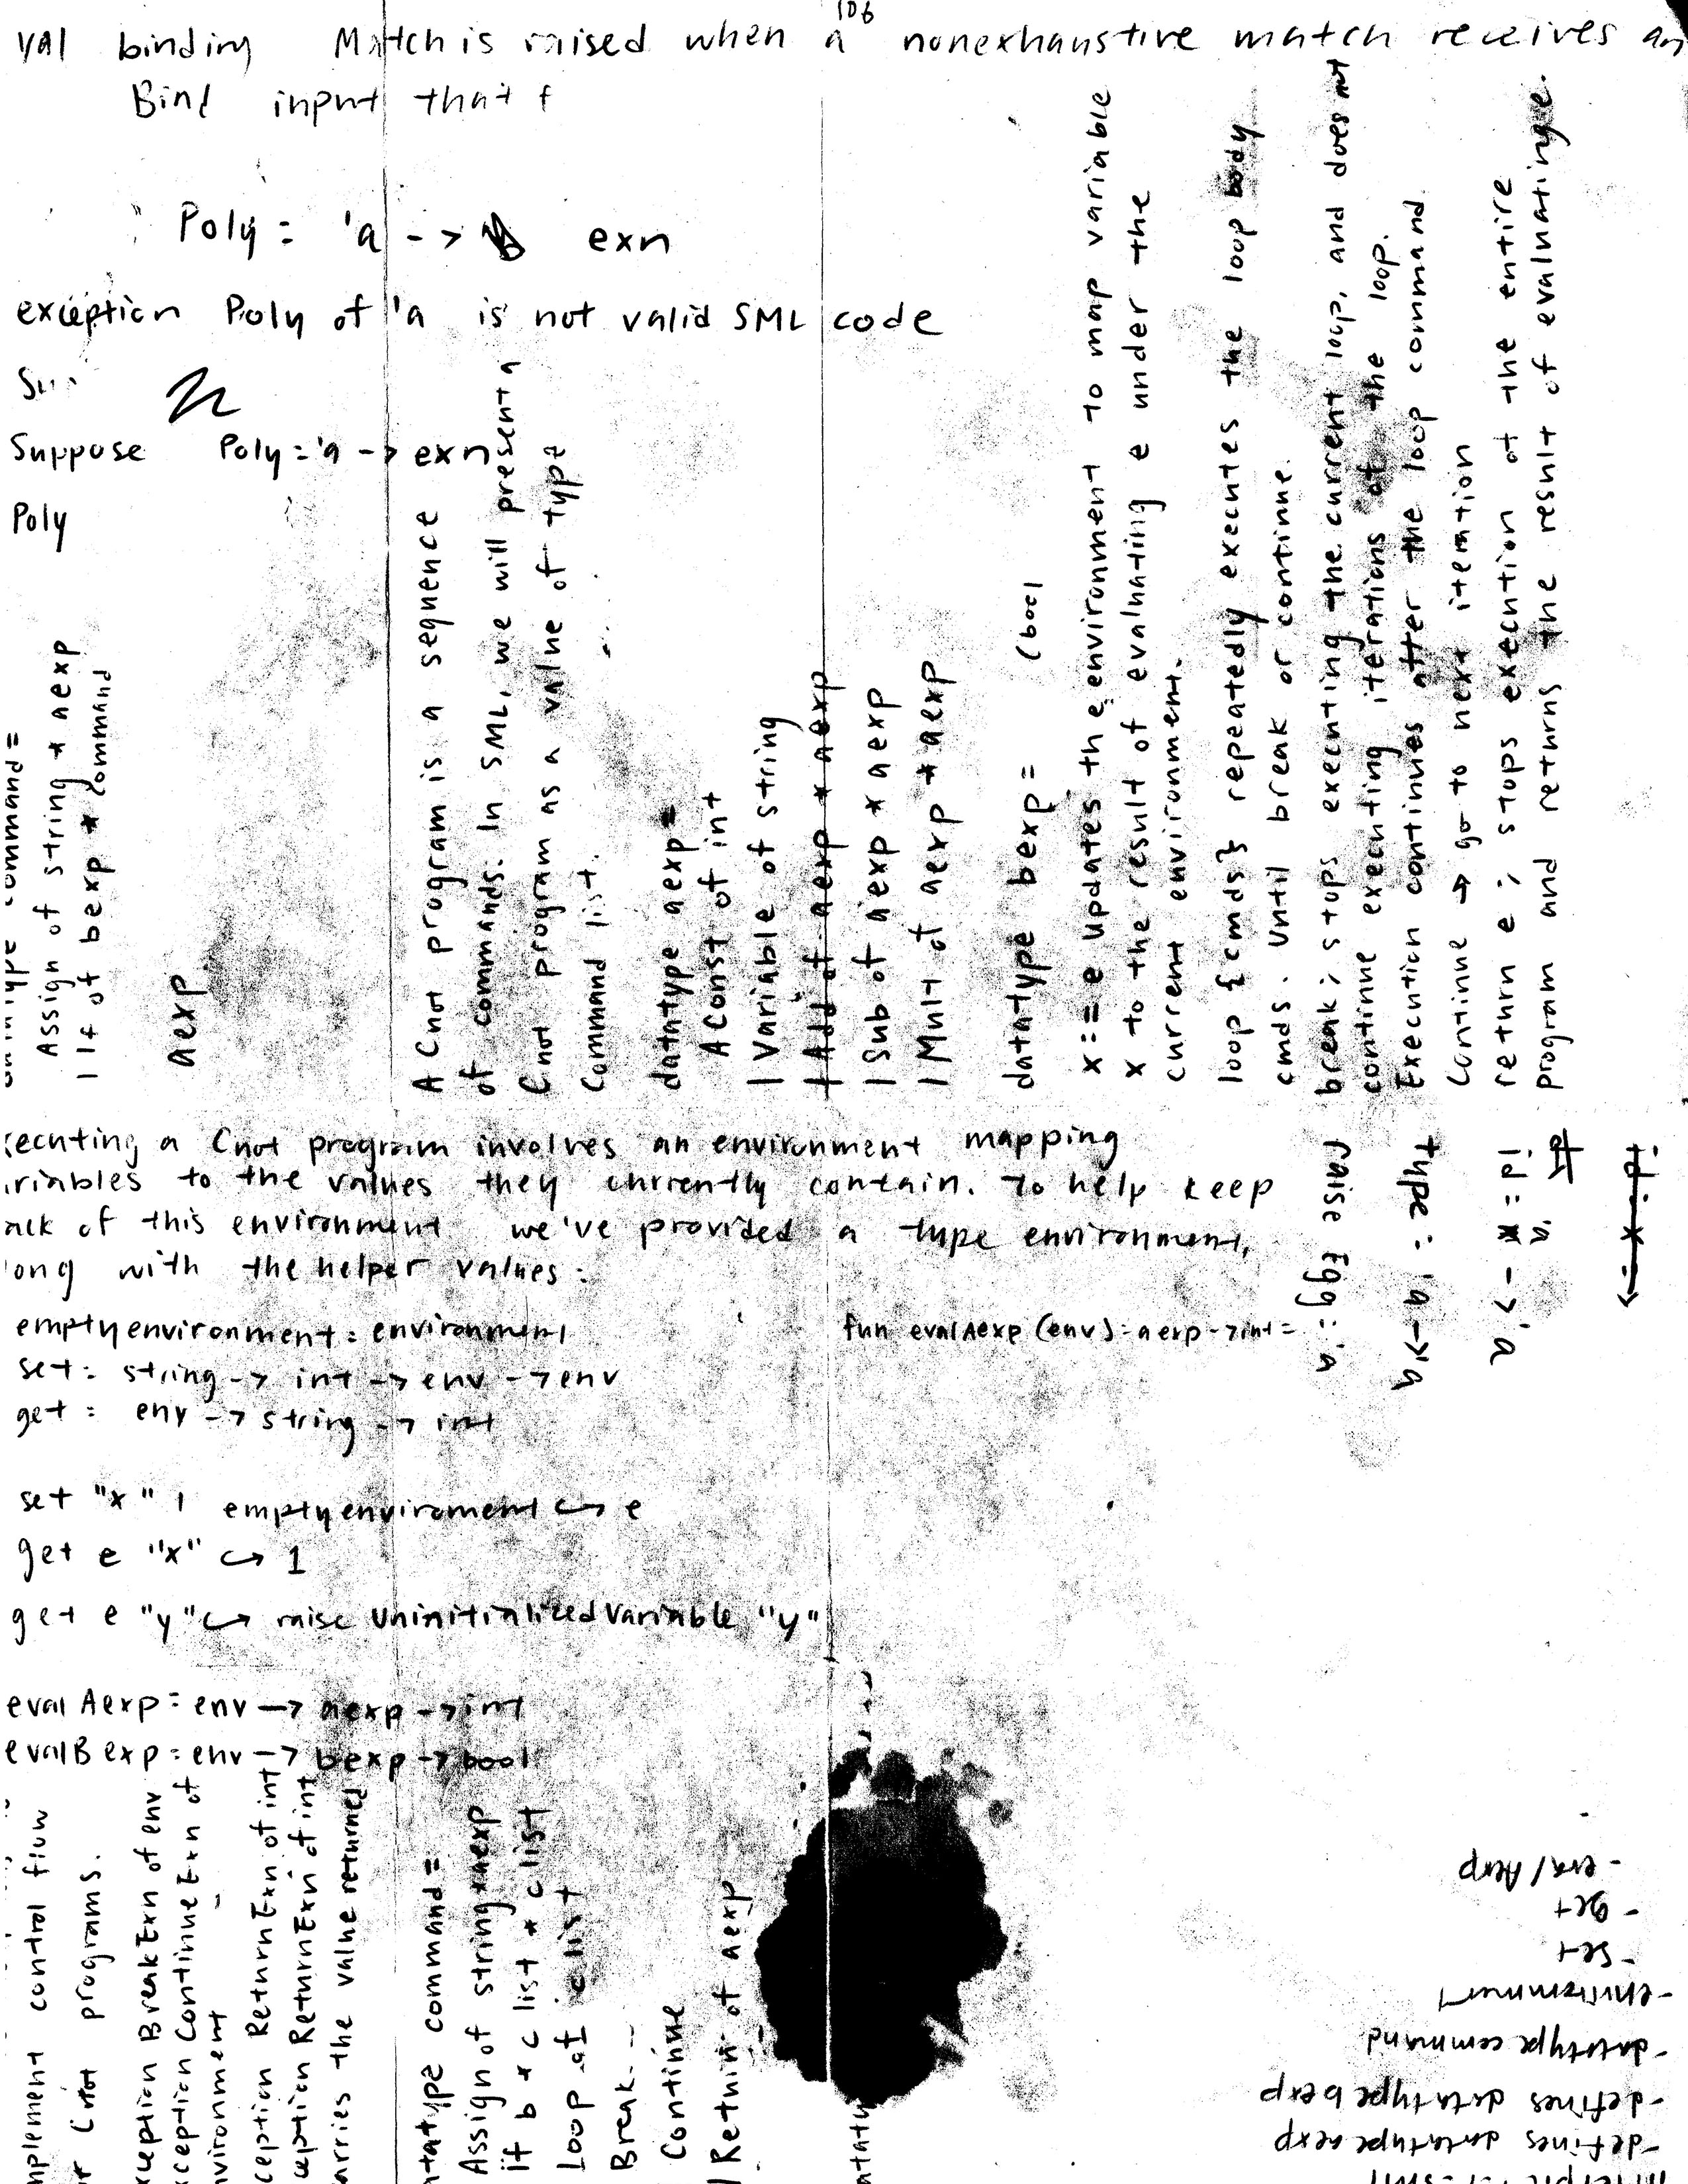 106
val binding Match is raised when a nonexhaustive match receives an
Bind input that f
Poly : 'a -> exn
exception Poly of 'a is not valid SML code
Suppose Poly : 'a -> exn
Poly
command =
Assign of string * aexp
| If of bexp * command
aexp
A Cnot program is a sequence
of commands. In SML, we will present a
Cnot program as a value of type
Command list.
datatype aexp =
AConst of int
| Variable of string
| Add of aexp * aexp
| Sub of aexp * aexp
| Mult of aexp * aexp
datatype bexp = (bool
x := e updates the environment to map variable
x to the result of evaluating e under the
current environment.
loop {cmds} repeatedly executes the loop body
cmds. Until break or continue.
break; stops executing the current loop, and does not
continue executing iterations of the loop.
Execution continues after the loop command
Continue → go to next iteration
return e; stops execution of the entire
program and returns the result of evaluating e.
ecuting a Cnot program involves an environment mapping
riables to the values they currently contain. To help keep
ack of this environment we've provided a type environment,
ong with the helper values:
emptyenvironment : environment
set : string -> int -> env -> env
get : env -> string -> int
fun evalAexp (env) : aexp -> int =
raise Egg : 'a
type : 'a -> 'a
set "x" 1 emptyenviroment ↪ e
get e "x" ↪ 1
get e "y" ↪ raise UninitializedVariable "y"
evalAexp : env -> aexp -> int
evalBexp : env -> bexp -> bool
mplement control flow
r Cnot programs.
xception BreakExn of env
xception ContinueExn of
nvironment
ception ReturnExn of int
eption ReturnExn of int
arries the value returned
tatype command =
Assign of string * aexp
If b * c list * c list
Loop of c list
Break
Continue
| Return of aexp
- defines datatype aexp
- defines datatype bexp
- datatype command
- environment
- set
- get
- eval Aexp